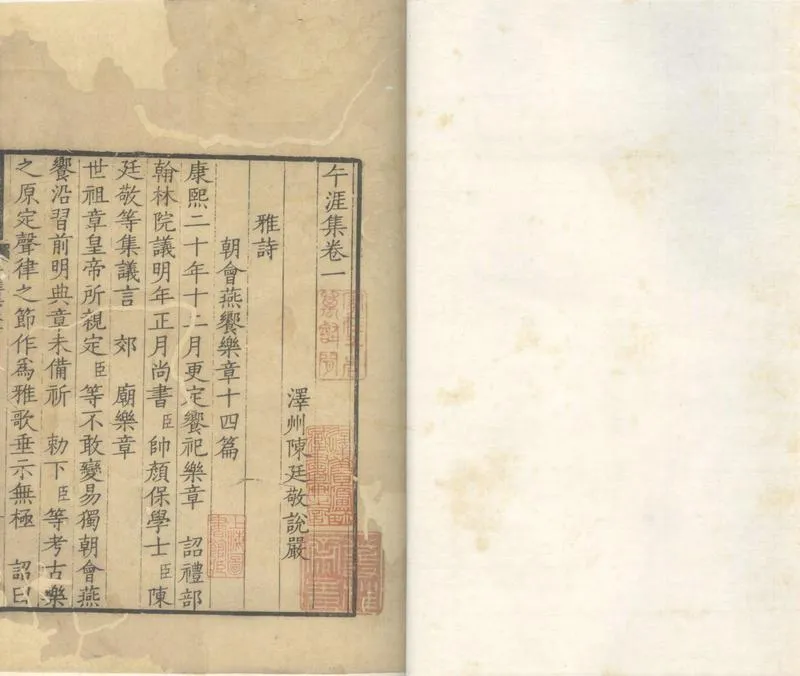 午涯集卷一
澤州陳廷敬說嚴
雅詩
朝會燕饗樂章十四篇
康熙二十年十二月更定饗祀樂章 詔禮部
翰林院議明年正月尚書臣帥顏保學士臣陳
廷敬等集議言 郊 廟樂章
世祖章皇帝所親定臣等不敢變易獨朝會燕
饗沿習前明典章未備祈 勑下臣等考古樂
之原定聲律之節作爲雅歌垂示無極 詔曰